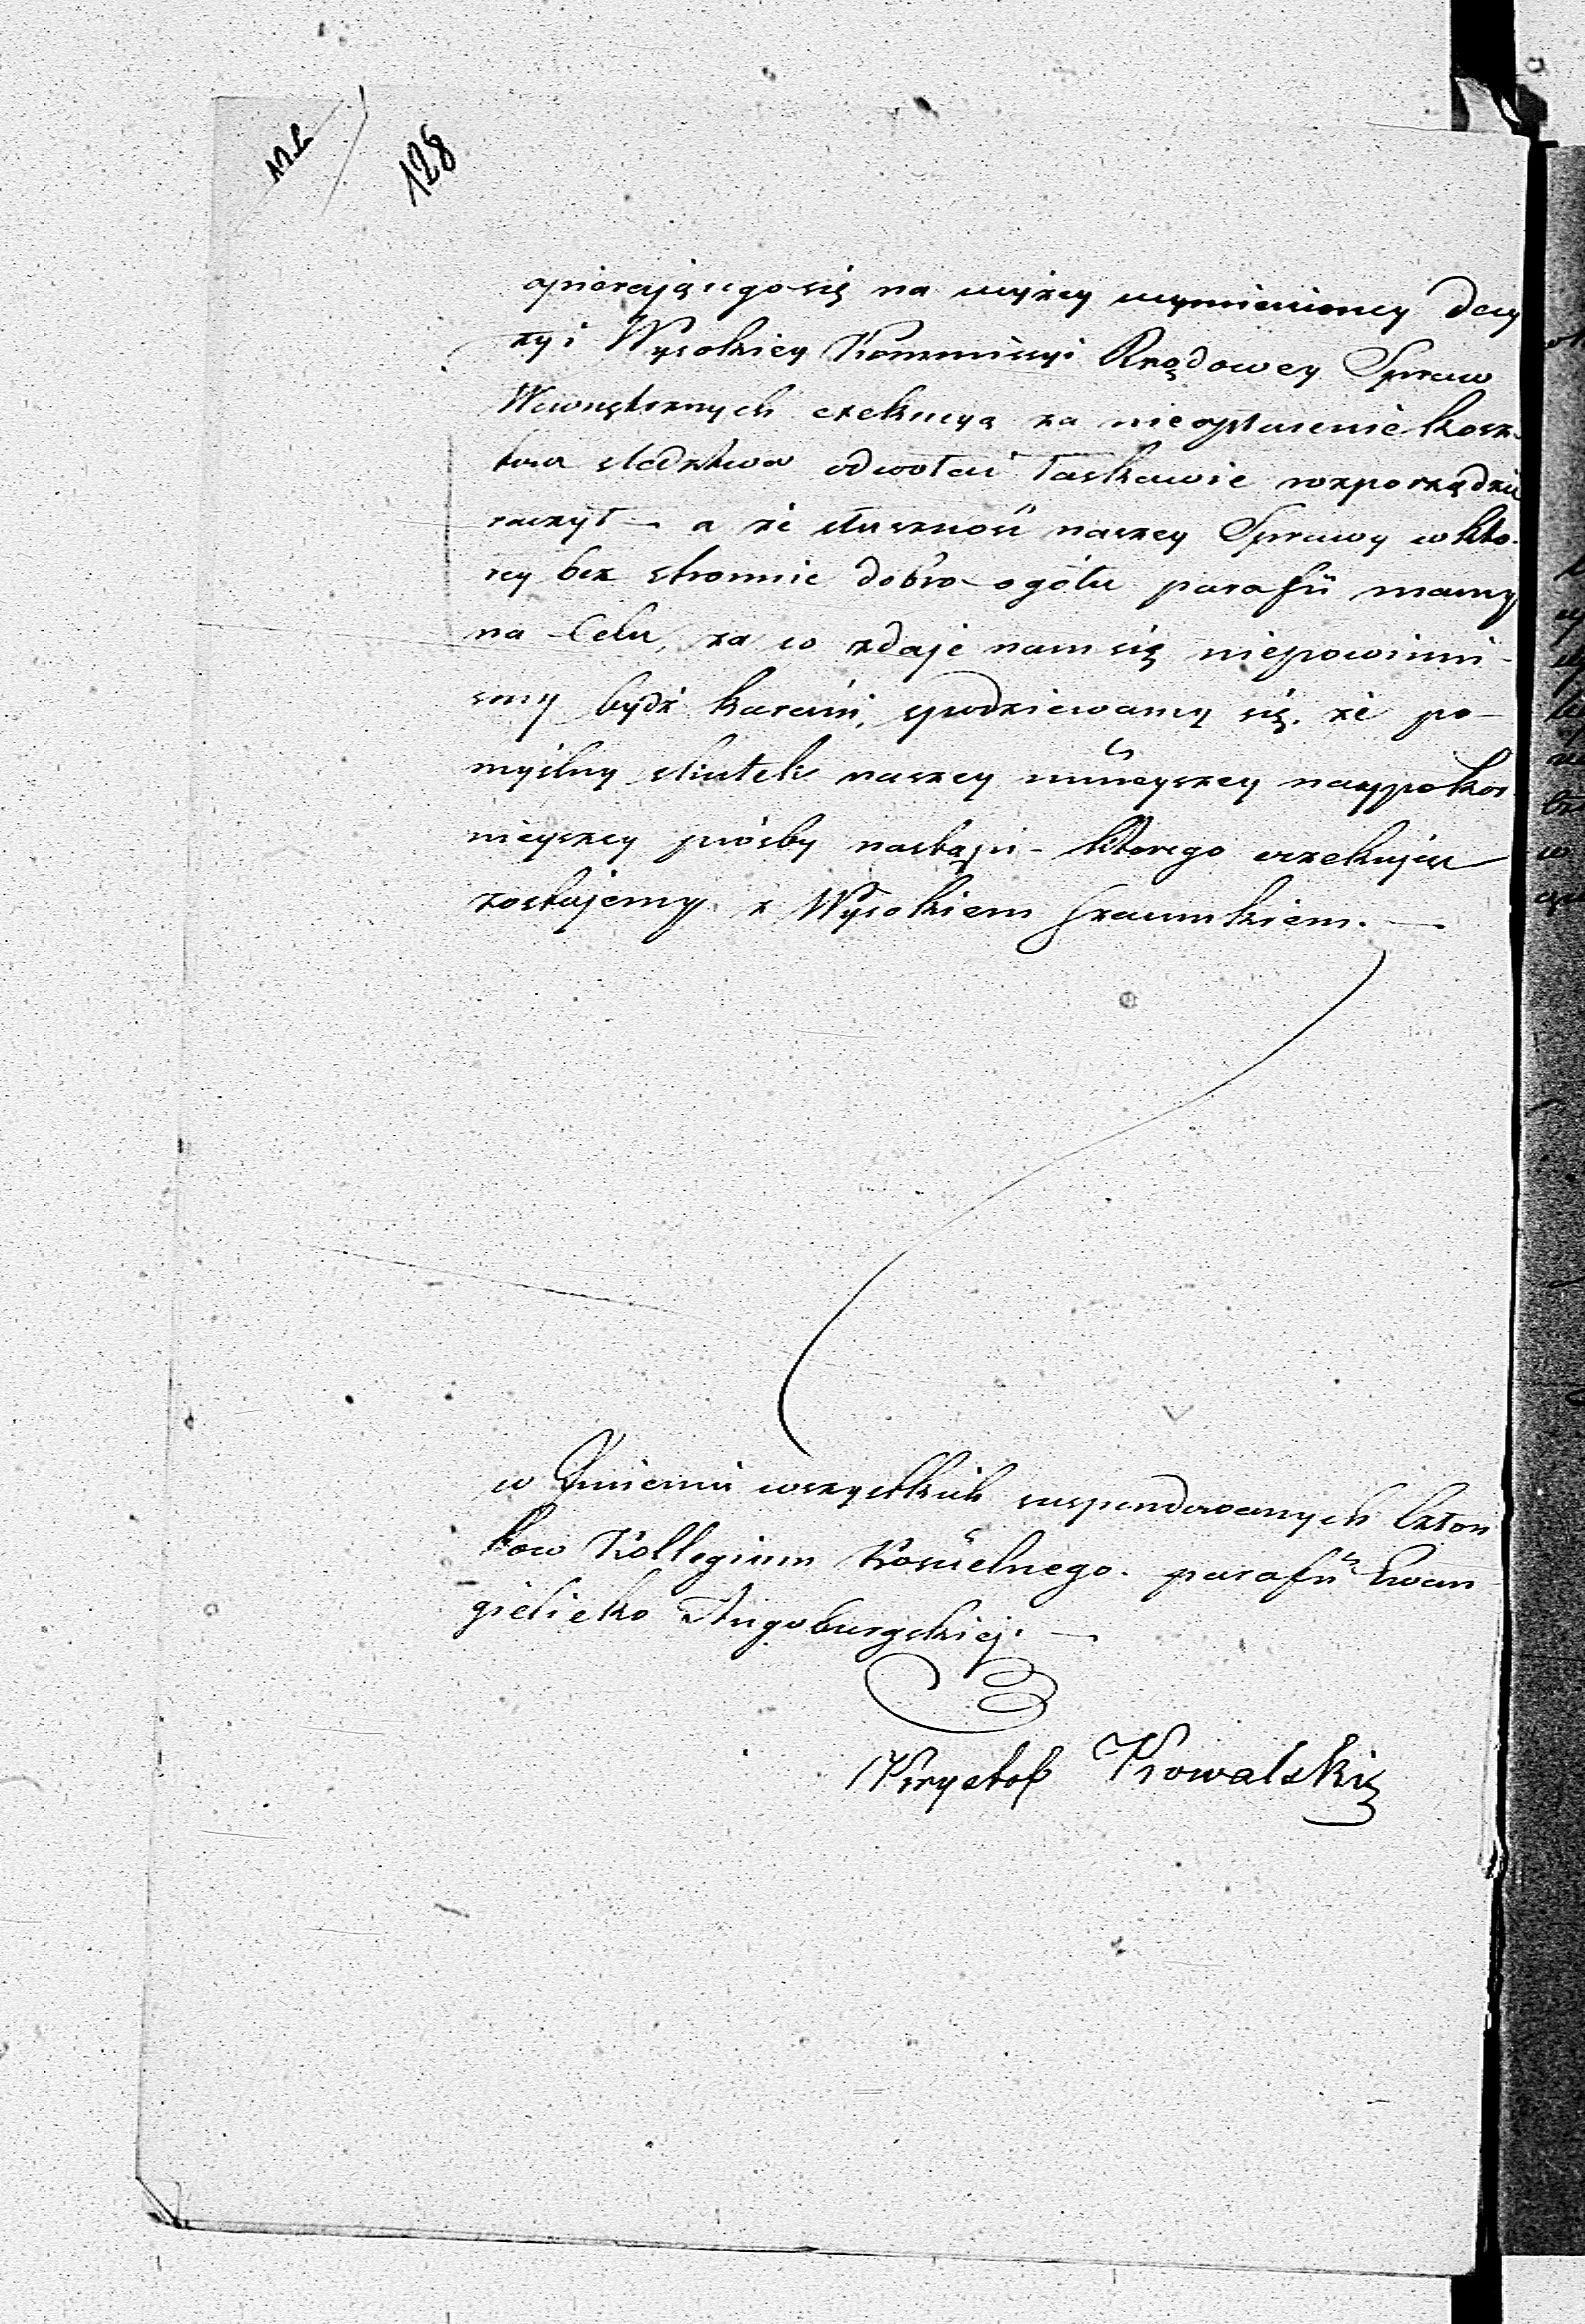 128
opierającego się na wyżey wymienioney decy
zyi Wysokiey Kommissyi Rządowey Spraw
Wewnętrznych exekucyą za nieopłacenie kosz-
tow śledztwa odwołać łaskawie rozporządzić
raczył – a że słuszność naszey Sprawy w któ-
rey bez stronnie dobro ogółu parafii mamy
na Celu, za co zdaje nam się niepowinni-
śmy bydź karani, spodziewamy się, że po-
myślny skutek naszey ninieyszey naypokor
nieyszey prośby nastąpi – którego oczekując
zostajemy z Wysokiem Szacunkiem. —
w Imieniu wszystkich suspendowanych Człon
kow Kollegium Kościelnego parafii Ewan
gielicko Augsburgskiej. —
Krysztof Kowalski